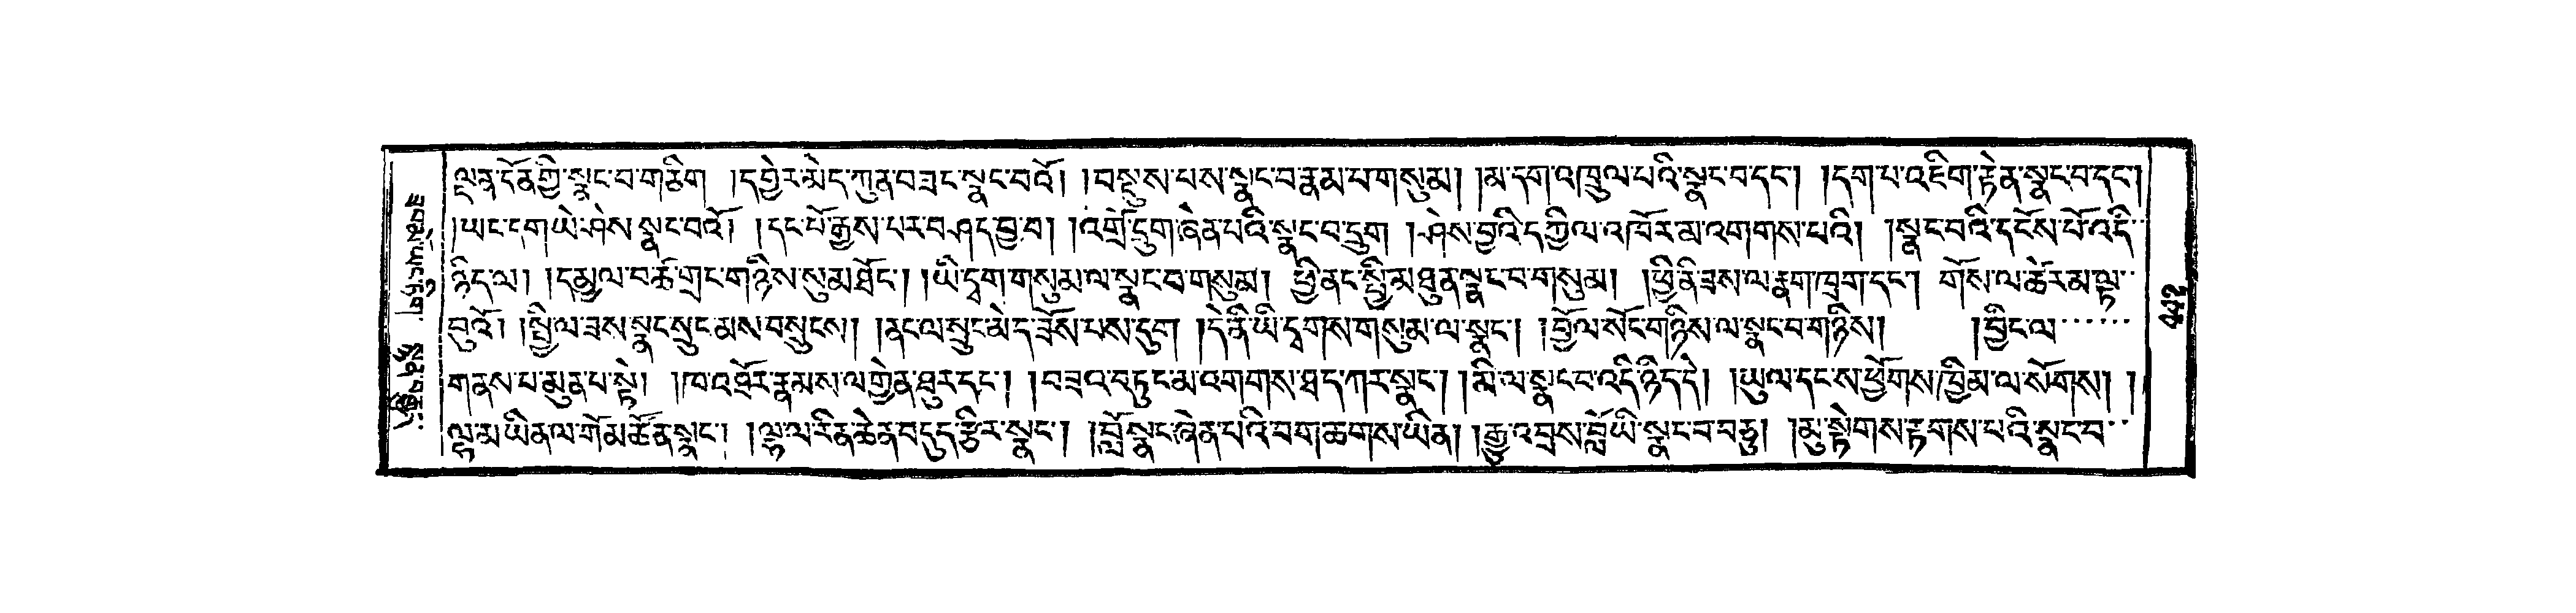 ལྡན་དོན་གྱི་སྣང་བ་གཅིག །དབྱེར་མེད་ཀུན་བཟང་སྣང་བའོ། །བསྡུས་པས་སྣང་བ་རྣམ་པ་གསུམ། །མ་དག་འཁྲུལ་པའི་སྣང་བ་དང་། །དག་པ་འཇིག་རྟེན་སྣང་བ་དང་།
།ཡང་དག་ཡེ་ཤེས་སྣང་བའོ། །དང་པོ་རྒྱས་པར་བཤད་བྱ་བ། །འགྲོ་དྲུག་ཞེན་པའི་སྣང་བ་དྲུག །ཤེས་བྱའི་དཀྱིལ་འཁོར་མ་འགགས་པའི། །སྣང་བའི་དངོས་པོ་འདི་
ཉིད་ལ། །དམྱལ་བ་ཚ་གྲང་གཉིས་སུ་མཐོང་། །ཡི་དྭག་གསུམ་ལ་སྣང་བ་གསུམ། ཕྱི་ནང་སྤྱི་མཐུན་སྣང་བ་གསུམ། །ཕྱི་ནི་ཟས་ལ་རྣག་ཁྲག་དང་། གོས་ལ་ཚེར་མ་ལྟ་
བུའོ། །སྤྱི་ལ་ཟས་སྣང་སྲུང་མས་བསྲུངས། །ནང་ལ་སྲུང་མེད་ཟོས་པས་དུག །དེ་ནི་ཡི་དྭགས་གསུམ་ལ་སྣང་། །བྱོལ་སོང་གཉིས་ལ་སྣང་བ་གཉིས། །བྱིང་ལ་
གནས་པ་མུན་པ་སྟེ། །ཁ་འཐོར་རྣམས་ལ་གྱེན་ཐུར་དང་། །བཟའ་བཏུང་མ་འགགས་ཐད་ཀར་སྣང་། །མི་ལ་སྣང་བ་འདི་ཉིད་དེ། །ཡུལ་དང་ས་ཕྱོགས་ཁྱིམ་ལ་སོགས། །
ལྷ་མ་ཡིན་ལ་གོ་མཚོན་སྣང་། །ལྷ་ལ་རིན་ཆེན་བདུད་རྩིར་སྣང་། །བློ་སྣང་ཞེན་པའི་བག་ཆགས་ཡིན། །རྒྱུ་འབྲས་བློ་ཡི་སྣང་བ་བརྒྱ། །མུ་སྟེགས་རྟགས་པའི་སྣང་བ་